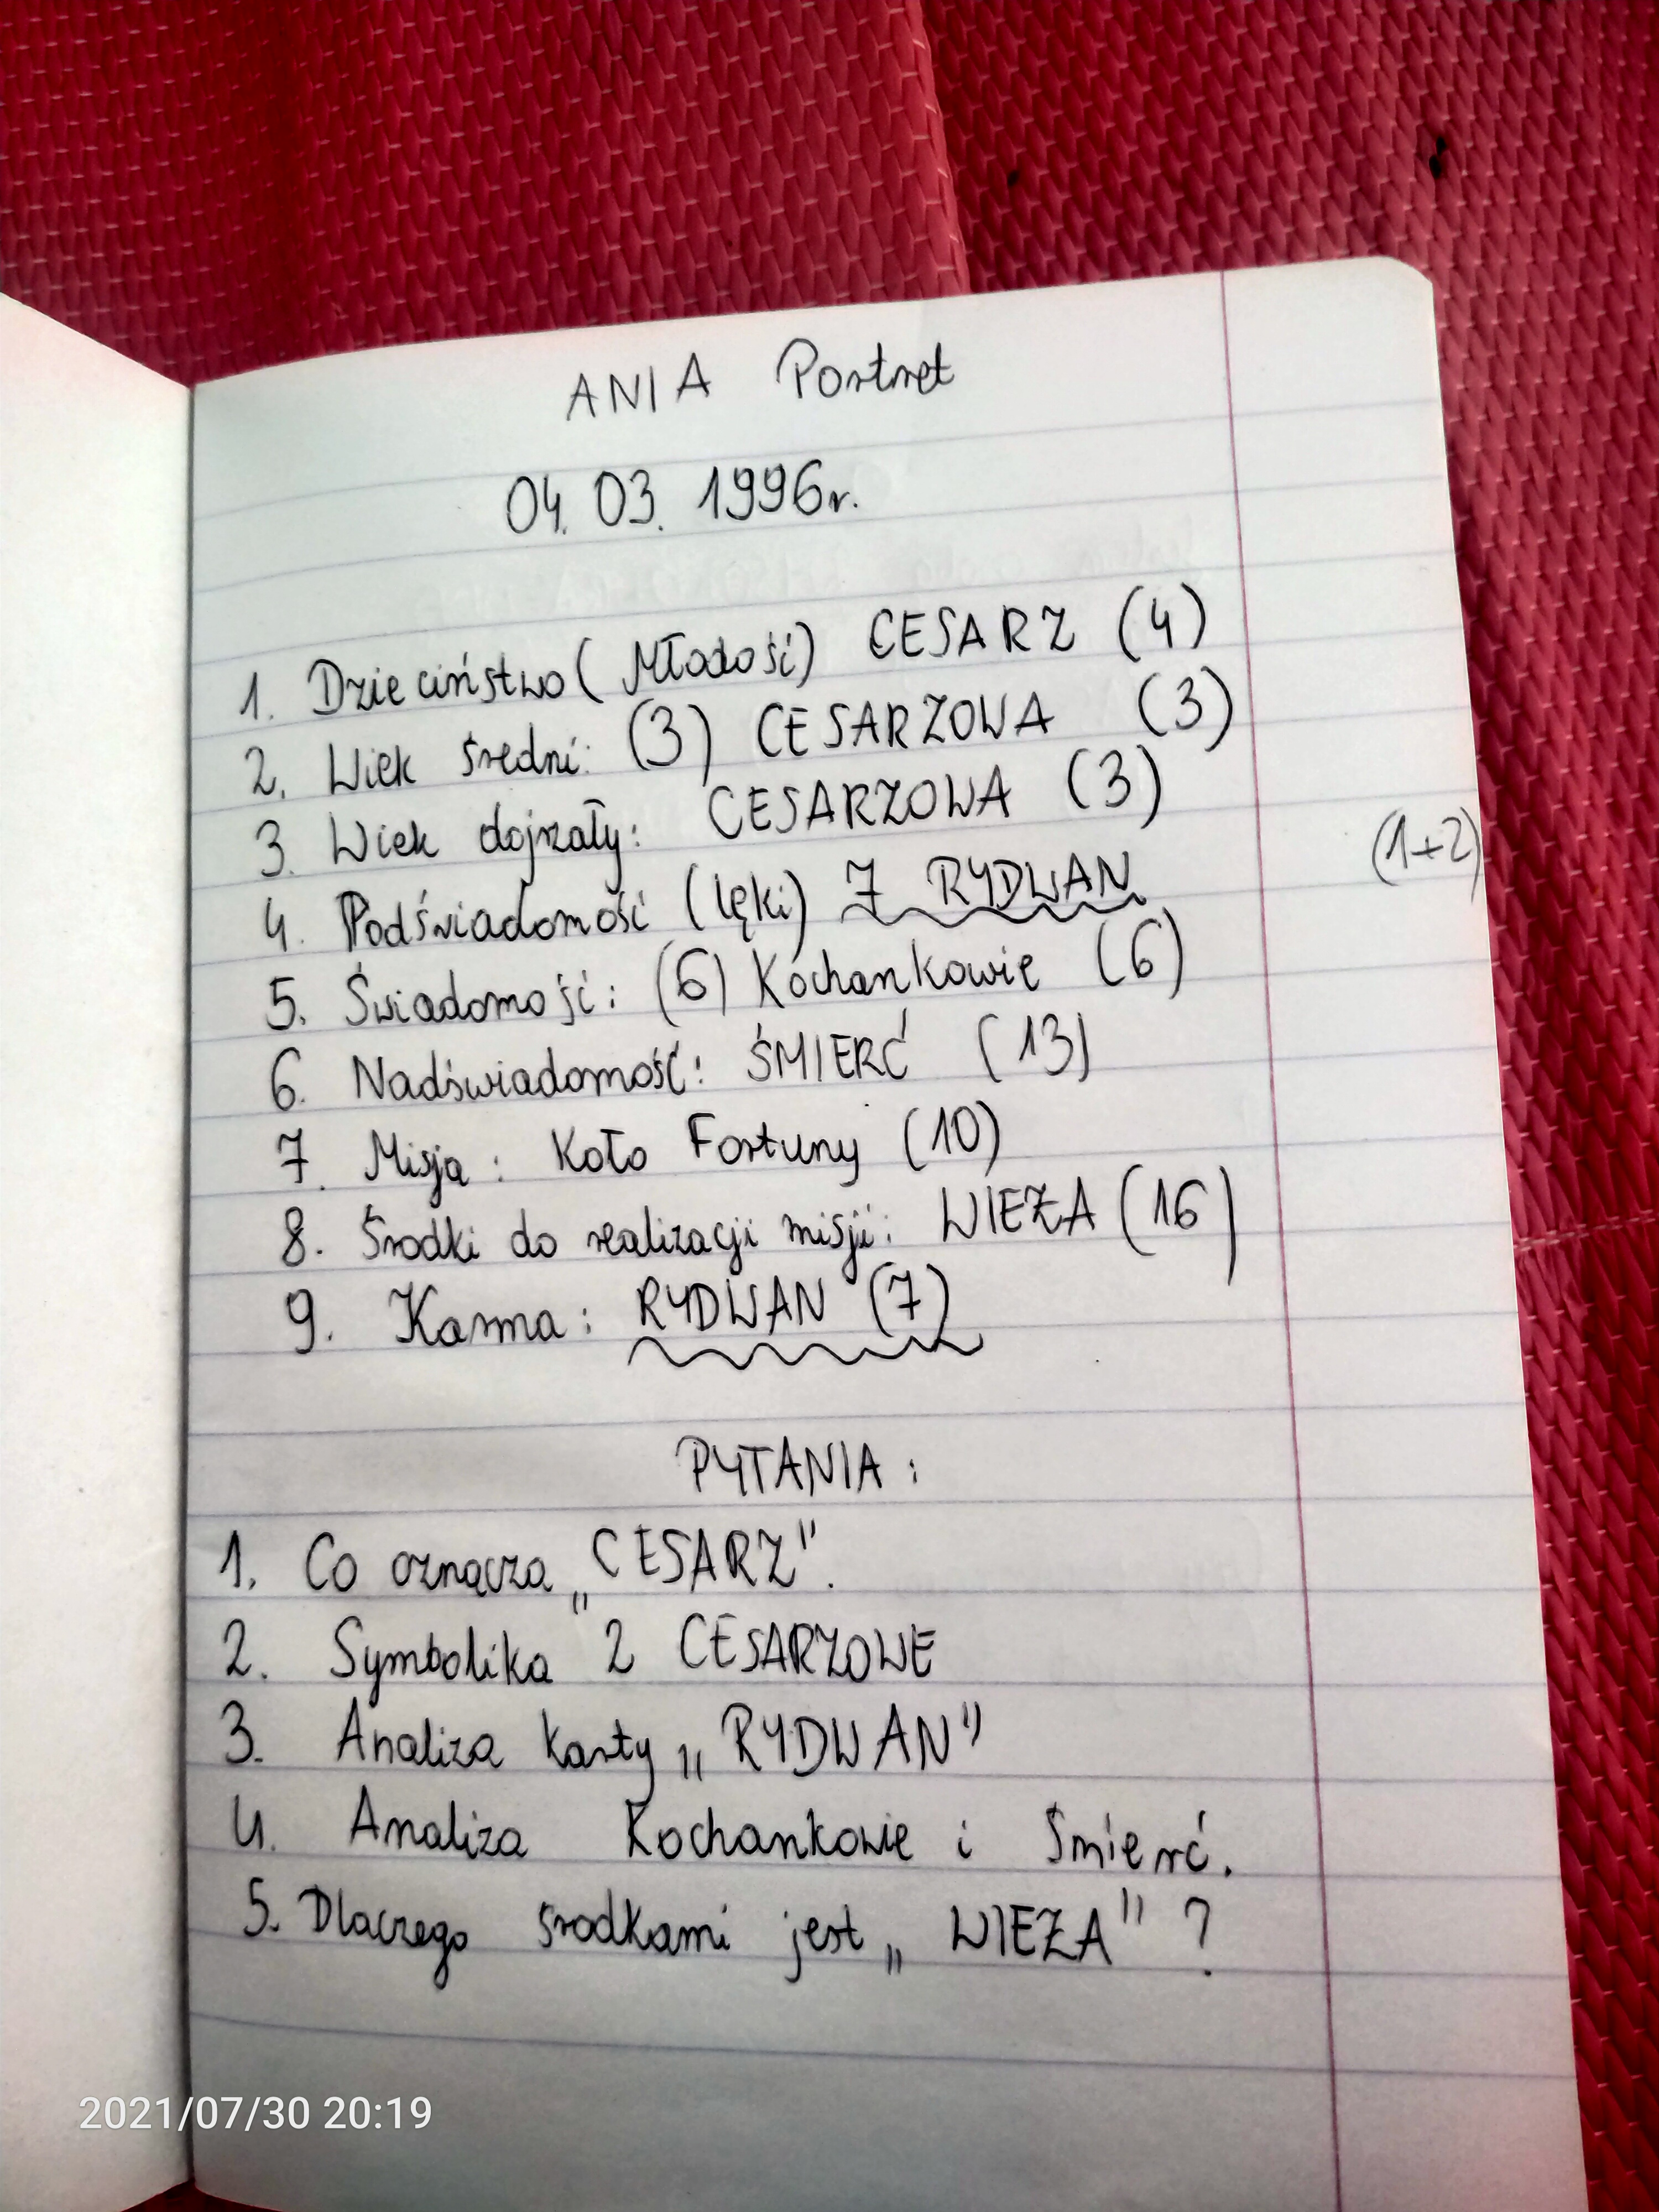 ANIA Portret
04. 03. 1996r.
1. Dzieciństwo (Młodość) CESARZ (4)
2. Wiek średni: (3) CESARZOWA (3)
3. Wiek dojrzały: CESARZOWA (3)
(1+2)
4. Podświadomość (lęki) 7 RYDWAN
5. Świadomość: (6) Kochankowie (6)
6. Nadświadomość: ŚMIERĆ (13)
7. Misja: Koło Fortuny (10)
8. Środki do realizacji misji: WIEŻA (16)
9. Karma: RYDWAN (7)
PYTANIA:
1. Co oznacza „CESARZ".
2. Symbolika 2 CESARZOWE
3. Analiza karty „RYDWAN"
4. Analiza Kochankowie i Śmierć.
5. Dlaczego środkami jest „WIEŻA"?
2021/07/30 20:19